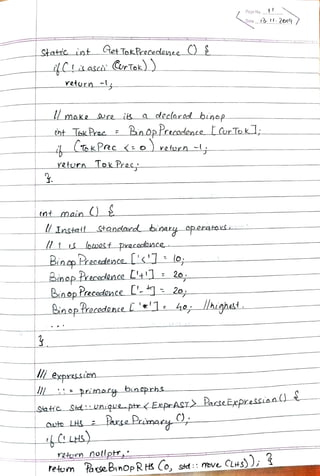 Page No. 11
Date 13.11.2009
static int GetTokPrecedence () {
if (! isascii (CurTok))
return -1;
// make sure its a declared binop
int TokPrec = BinOpPrecedence [CurTok];
if (TokPrec <= 0) return -1;
return TokPrec;
}.
int main () {
// Install standard binary operators.
// 1 is lowest precedence.
Binop Precedence ['<'] = 10;
Binop Precedence ['+'] = 20;
Binop Precedence ['-'] = 20;
Binop Precedence ['*'] = 40; //highest.
...
}.
/// expression
/// ::= primary binoprhs
static std::unique_ptr <ExprAST> ParseExpression() {
auto LHS = Parse Primary ();
if (! LHS)
return nullptr;
return ParseBinOpRHS (0, std::move (LHS)); }